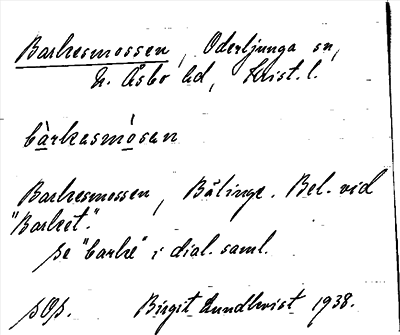 Barkesmossen, Oderljunga sn,
N. Åsbo hd, Krist. l.
bàrkasmòsan
Barkesmossen, Bålinge. Bel. vid
"Barket."
se "barke" i dial. saml.
sOp. Birgit Lundkvist 1938.